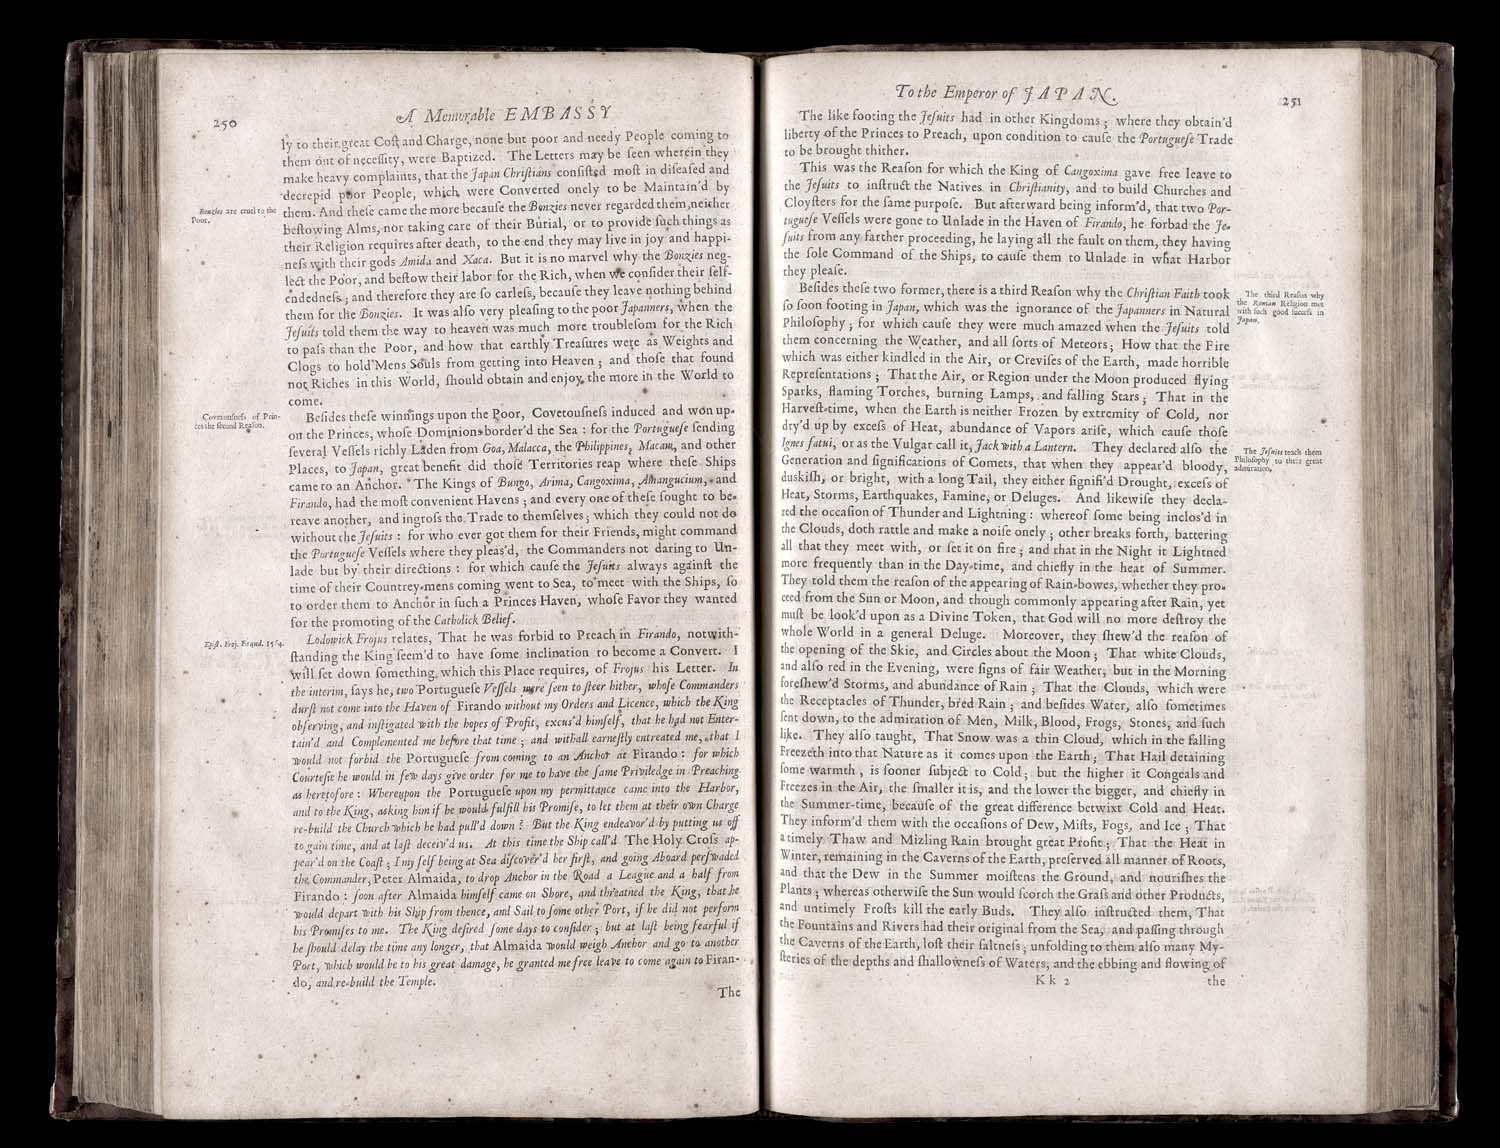 250
A Memorable EMBASSY
ly to their great Coſt and Charge, none but poor and needy People coming to
them out of neceſſity, were Baptized. The Letters may be ſeen wherein they
make heavy complaints, that the Japan Chriſtians conſiſted moſt in diſeaſed and
decrepid poor People, which were Converted onely to be Maintain'd by
Bonzies are cruel to the
Poor.
them. And theſe came the more becauſe the Bonzies never regarded them, neither
beſtowing Alms, nor taking care of their Burial, or to provide ſuch things as
their Religion requires after death, to the end they may live in joy and happi-
neſs with their gods Amida and Xaca. But it is no marvel why the Bonzies neg-
lect the Poor, and beſtow their labor for the Rich, when we conſider their ſelf-
endedneſs; and therefore they are ſo carleſs, becauſe they leave nothing behind
them for the Bonzies. It was alſo very pleaſing to the poor Japanners, when the
Jeſuits told them the way to heaven was much more troubleſom for the Rich
to paſs than the Poor, and how that earthly Treaſures were as Weights and
Clogs to hold Mens Souls from getting into Heaven; and thoſe that found
not Riches in this World, ſhould obtain and enjoy the more in the World to
come.
Covetouſneſs of Prin-
ces the ſecond Reaſon.
Beſides theſe winnings upon the Poor, Covetouſneſs induced and won up-
on the Princes, whoſe Dominions border'd the Sea: for the Portugueſe ſending
ſeveral Veſſels richly Laden from Goa, Malacca, the Philippines, Macam, and other
Places, to Japan, great benefit did thoſe Territories reap where theſe Ships
came to an Anchor. The Kings of Bungo, Arima, Cangoxima, Amangucium, and
Firando, had the moſt convenient Havens; and every one of theſe ſought to be-
reave another, and ingroſs the Trade to themſelves; which they could not do
without the Jeſuits: for who ever got them for their Friends, might command
the Portugueſe Veſſels where they pleas'd, the Commanders not daring to Un-
lade but by their directions: for which cauſe the Jeſuits always againſt the
time of their Countrey-mens coming went to Sea, to meet with the Ships, ſo
to order them to Anchor in ſuch a Princes Haven, whoſe Favor they wanted
for the promoting of the Catholick Belief.
Epiſt. Froj. Firand. 1564.
Lodowick Frojus relates, That he was forbid to Preach in Firando, notwith-
ſtanding the King ſeem'd to have ſome inclination to become a Convert. I
will ſet down ſomething, which this Place requires, of Frojus his Letter. In
the interim, ſays he, two Portugueſe Veſſels were ſeen to ſteer hither, whoſe Commanders
durſt not come into the Haven of Firando without my Orders and Licence, which the King
obſerving, and inſtigated with the hopes of Profit, excus'd himſelf, that he had not Enter-
tain'd and Complemented me before that time; and withall earneſtly entreated me, that I
would not forbid the Portugueſe from coming to an Anchor at Firando: for which
Courteſie he would in few days give order for me to have the ſame Priviledge in Preaching
as heretofore: Whereupon the Portugueſe upon my permittance came into the Harbor,
and to the King, asking him if he would fulfill his Promiſe, to let them at their own Charge
re-build the Church which he had pull'd down? But the King endeavor'd by putting us off
to gain time, and at laſt deceiv'd us. At this time the Ship call'd The Holy Croſs ap-
pear'd on the Coaſt; I my ſelf being at Sea diſcover'd her firſt, and going Aboard perſwaded
the Commander, Peter Almaida, to drop Anchor in the Road a League and a half from
Firando: ſoon after Almaida himſelf came on Shore, and threatned the King, that he
would depart with his Ship from thence, and Sail to ſome other Port, if he did not perform
his Promiſes to me. The King deſired ſome days to conſider; but at laſt being fearful if
he ſhould delay the time any longer, that Almaida would weigh Anchor and go to another
Port, which would be to his great damage, he granted me free leave to come again to Firan-
do, and re-build the Temple.
The
To the Emperor of JAPAN.
251
The like footing the Jeſuits had in other Kingdoms; where they obtain'd
liberty of the Princes to Preach, upon condition to cauſe the Portugueſe Trade
to be brought thither.
This was the Reaſon for which the King of Cangoxima gave free leave to
the Jeſuits to inſtruct the Natives in Chriſtianity, and to build Churches and
Cloyſters for the ſame purpoſe. But afterward being inform'd, that two Por-
tugueſe Veſſels were gone to Unlade in the Haven of Firando, he forbad the Je-
ſuits from any farther proceeding, he laying all the fault on them, they having
the ſole Command of the Ships, to cauſe them to Unlade in what Harbor
they pleaſe.
Beſides theſe two former, there is a third Reaſon why the Chriſtian Faith took
The third Reaſon why
the Roman Religion met
with ſuch good ſucceſs in
Japan.
ſo ſoon footing in Japan, which was the ignorance of the Japanners in Natural
Philoſophy; for which cauſe they were much amazed when the Jeſuits told
them concerning the Weather, and all ſorts of Meteors; How that the Fire
which was either kindled in the Air, or Creviſes of the Earth, made horrible
Repreſentations; That the Air, or Region under the Moon produced flying
Sparks, flaming Torches, burning Lamps, and falling Stars; That in the
Harveſt-time, when the Earth is neither Frozen by extremity of Cold, nor
dry'd up by exceſs of Heat, abundance of Vapors ariſe, which cauſe thoſe
Ignes fatui, or as the Vulgar call it, Jack with a Lantern. They declared alſo the
The Jeſuits teach them
Philoſophy to their great
admiration.
Generation and ſignifications of Comets, that when they appear'd bloody,
duskiſh, or bright, with a long Tail, they either ſignifi'd Drought, exceſs of
Heat, Storms, Earthquakes, Famine, or Deluges. And likewiſe they decla-
red the occaſion of Thunder and Lightning: whereof ſome being inclos'd in
the Clouds, doth rattle and make a noiſe onely; other breaks forth, battering
all that they meet with, or ſet it on fire; and that in the Night it Lightned
more frequently than in the Day-time, and chiefly in the heat of Summer.
They told them the reaſon of the appearing of Rain-bowes, whether they pro-
ceed from the Sun or Moon, and though commonly appearing after Rain, yet
muſt be look'd upon as a Divine Token, that God will no more deſtroy the
whole World in a general Deluge. Moreover, they ſhew'd the reaſon of
the opening of the Skie, and Circles about the Moon; That white Clouds,
and alſo red in the Evening, were ſigns of fair Weather, but in the Morning
foreſhew'd Storms, and abundance of Rain; That the Clouds, which were
the Receptacles of Thunder, bred Rain; and beſides Water, alſo ſometimes
ſent down, to the admiration of Men, Milk, Blood, Frogs, Stones, and ſuch
like. They alſo taught, That Snow was a thin Cloud, which in the falling
Freezeth into that Nature as it comes upon the Earth; That Hail detaining
ſome warmth, is ſooner ſubject to Cold; but the higher it Congeals and
Freezes in the Air, the ſmaller it is, and the lower the bigger, and chiefly in
the Summer-time, becauſe of the great difference betwixt Cold and Heat.
They inform'd them with the occaſions of Dew, Miſts, Fogs, and Ice; That
a timely Thaw and Mizling Rain brought great Profit; That the Heat in
Winter, remaining in the Caverns of the Earth, preſerved all manner of Roots,
and that the Dew in the Summer moiſtens the Ground, and nouriſhes the
Plants; whereas otherwiſe the Sun would ſcorch the Graſs and other Products,
and untimely Froſts kill the early Buds. They alſo inſtructed them, That
the Fountains and Rivers had their original from the Sea, and paſſing through
the Caverns of the Earth, loſt their ſaltneſs; unfolding to them alſo many My-
ſteries of the depths and ſhallowneſs of Waters, and the ebbing and flowing of
Kk 2
the